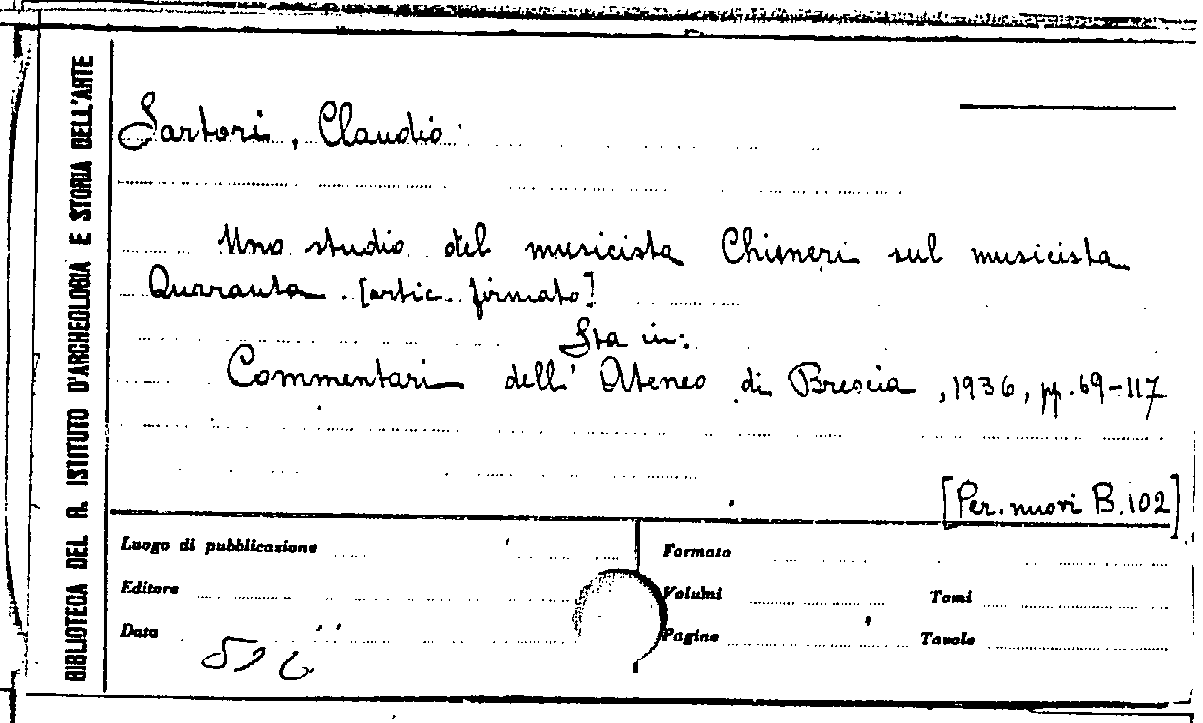 BIBLIOTECA DEL R. ISTITUTO D'ARCHEOLOGIA E STORIA DELL'ARTE
Sartori, Claudio
Uno studio del musicista Chimeri sul musicista
Quaranta. [artic. firmato]
Sta in:
Commentari dell'Ateneo di Brescia, 1936, pp. 69-117
[Per. nuovi B.102]
Luogo di pubblicazione
Formato
Editore
Volumi
Tomi
Data
Pagine
Tavole